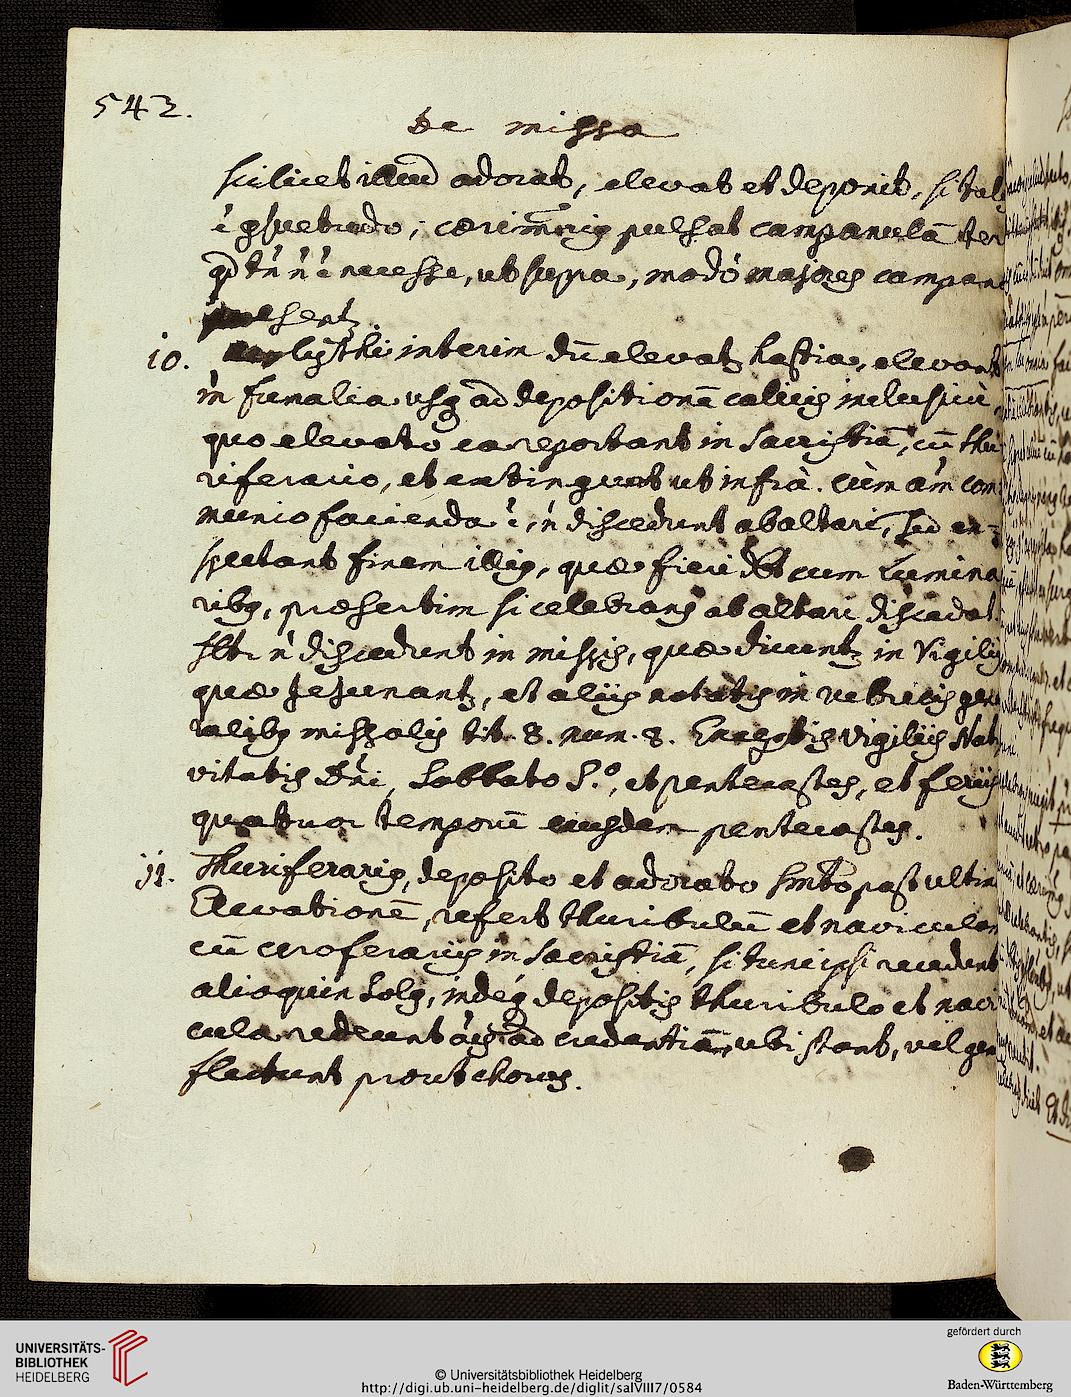 542.
De missa
scilicet illud adorat, elevat et deponit, si talis
ē gsuetudo; cærimrig pulsat campanulā ter
qd tn̄ n̄ ē necesse, ut supra, modo majores campan
pulsentz
10. Acolythi interim dū elevatz hostia, elevant
in funalia usg ad depositionē calicis inclusivè
quo elevato ea reportant in sacristiā, cū thu
riferario, et extinguunt ut infrà. cùm am̄ com
munio facienda ē, n̄ discedunt ab altari, sed ex-
spectant finem illig, quæ fieri dēt cum Lumina
ribg, præsertim si celebrans ab altari discedat.
n̄ discedunt in missis, quæ dicuntz in Vigiliis
quæ jejunantz, et aliis notatis in rubricis gene
ralibg missalis tit. 8. num. 8. Exceptis vigiliis Nati
vitatis Dn̄i, Sabbato S.º, et pentecostes, et feriis
quatuor temporū eiusdem pentecostes.
11. Thuriferarig, deposito et adorato post ultim
Elevationē, refert thuribulū et naviculam
cū ceroferariis in sacristiā, si tunc ipsi recedunt
alioquin solg, indeq depositis thuribulo et navi
cula redeunt ad credentiam, ubi stant, vel gen
flectunt prout chorus.
UNIVERSITÄTS-
BIBLIOTHEK
HEIDELBERG
© Universitätsbibliothek Heidelberg
http://digi.ub.uni-heidelberg.de/diglit/salVIII7/0584
gefördert durch
Baden-Württemberg